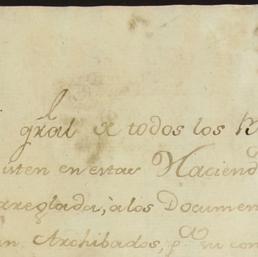 gral a todos los
isten en estas Haciend
rreglada, a los Documen
an Archibados, pa. su con